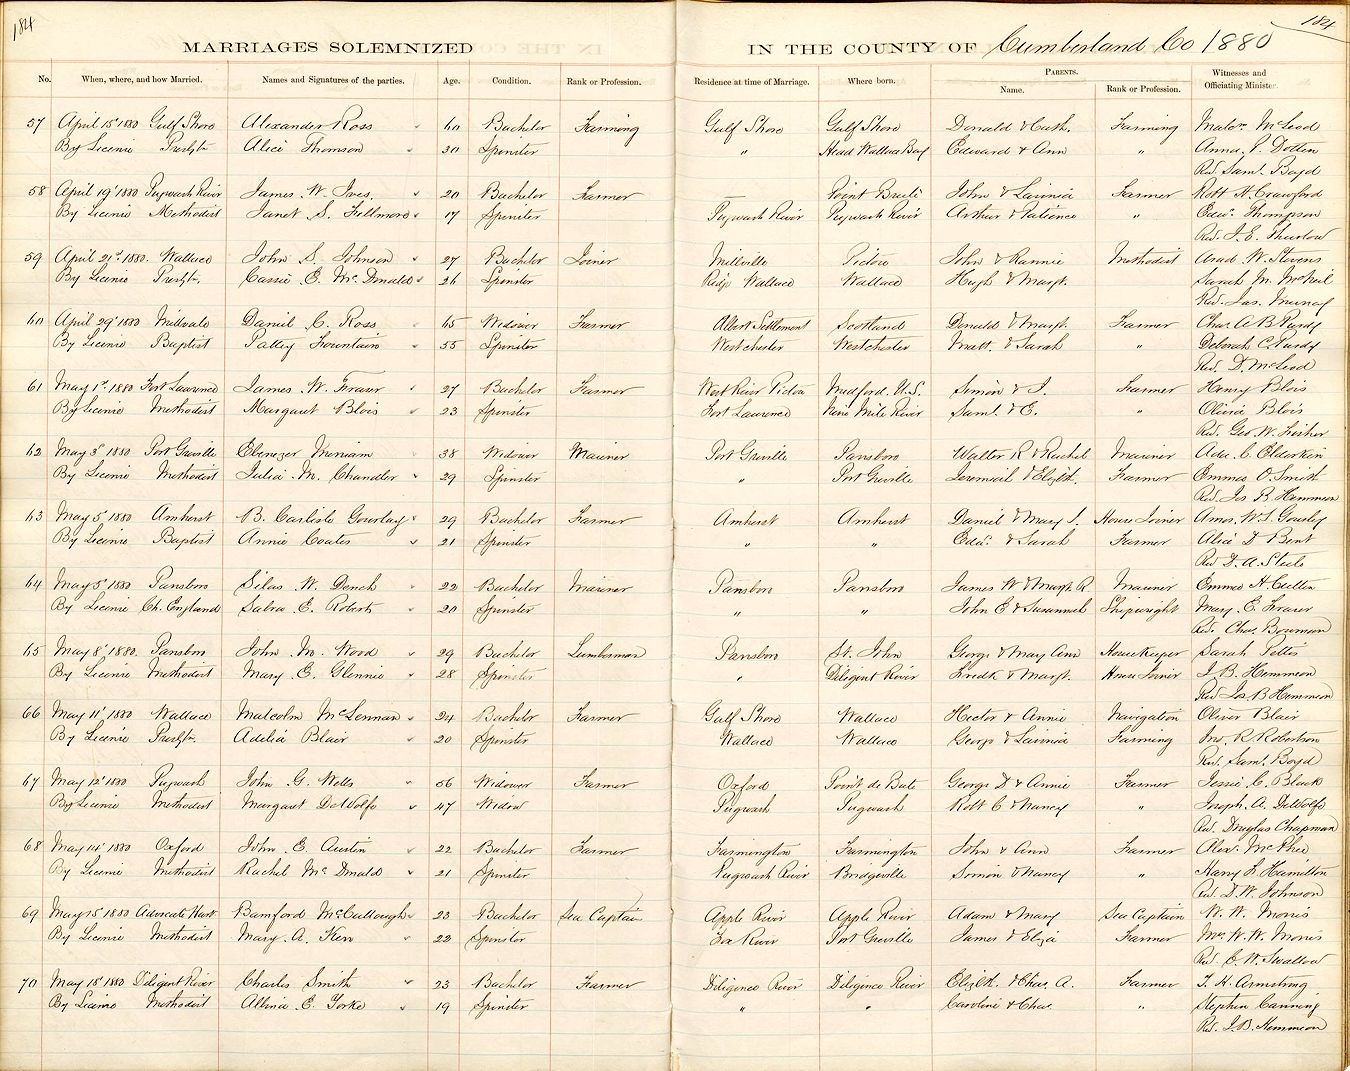 184
184
MARRIAGES SOLEMNIZED IN THE COUNTY OF Cumberland Co 1880
No. When, where, and how Married. Names and Signatures of the parties. Age. Condition. Rank or Profession. Residence at time of Marriage. Where born. PARENTS. Name. Rank or Profession. Witnesses and Officiating Minister.
57 April 15 1880 Gulf Shore Alexander Ross 60 Bachelor Farming Gulf Shore Gulf Shore Donald & Cath. Farming McLeod
By License Presbtn Alice Thomson 30 Spinster " Head Wallace Bay Edward & Ann " Anna
Rev. Saml. Boyd
58 April 19 1880 Pugwash River James W. Ives 20 Bachelor Farmer Point Brulé John & Lavinia Farmer Robt H. Crawford
By License Methodist Janet S. Fillmore 17 Spinster Pugwash River Pugwash River Arthur & Patience " Edw. Thompson
Rev. J. E. Thurlow
59 April 21st 1880. Wallace John S. Johnson 27 Bachelor Joiner Millville Pictou John & Nannie Methodist Asad W. Stevens
By License Presbtn. Cassie E. McDonald 26 Spinster Ridge Wallace Wallace Hugh & Margt. Sarah M. McNeil
Rev. Jas. Murray
60 April 29 1880 Millvale Daniel C. Ross 65 Widower Farmer Albert Settlement Scotland Donald & Margt. Farmer Chas. A. B. Purdy
By License Baptist Patty Fountain 55 Spinster Westchester Westchester Matt. & Sarah " Deborah C. Purdy
Rev. D. McLeod
61 May 1st 1880 Fort Lawrence James W. Fraser 27 Bachelor Farmer West River Pictou Medford, U.S. Simon & J. Farmer Henry Blois
By License Methodist Margaret Blois 23 Spinster Fort Lawrence Nine Mile River Saml. & E. " Olivia Blois
Rev. Geo. W. Fisher
62 May 3d 1880 Port Greville Ebenezer Merriam 38 Widower Mariner Port Greville Parrsboro Walter R & Rachel Mariner Ada. C. Elderkin
By License Methodist Julia M. Chandler 29 Spinster " Port Greville Jeremiah & Elizbth. Farmer Emmes O. Smith
Rev. Jos B. Hemmeon
63 May 5 1880 Amherst B. Carlisle Gourlay 29 Bachelor Farmer Amherst Amherst Daniel & Mary J. House Joiner Amos. W. S. Gourley
By License Baptist Annie Coates 21 Spinster " " Edw. & Sarah Farmer Alice D Bent
Rev D. A. Steele
64 May 5 1880 Parrsboro Silas W. Dench 22 Bachelor Mariner Parrsboro Parrsboro James W & Margt R Mariner Emma H. Cutten
By License Ch. England Sabra E. Roberts 20 Spinster " " John E & Susannah Shipwright Mary E. Fraser
Rev. Chas. Bowman
65 May 8 1880. Parrsboro John M. Wood 29 Bachelor Lumberman Parrsboro St. John George & Mary Ann House Keeper Sarah Pettis
By License Methodist Mary E. Glennie 28 Spinster " Diligent River Fredk & Margt. House Joiner J. B. Hemmeon
Rev Jos B Hemmeon
66 May 11 1880 Wallace Malcolm McLennan 24 Bachelor Farmer Gulf Shore Wallace Hector & Annie Navigation Oliver Blair
By License Presbtn. Adelia Blair 20 Spinster Wallace Wallace George & Lavinia Farming Jno. R. Robertson
Rev. Saml. Boyd
67 May 12 1880 Pugwash John G. Wells 56 Widower Farmer Oxford Point de Bute George D & Annie Farmer Jessie C. Black
By License Methodist Margaret DeWolfe 47 Widow Pugwash Pugwash Robt C & Nancy " Joseph A. DeWolfe
Rev. Douglas Chapman
68 May 14 1880 Oxford John E. Austin 22 Bachelor Farmer Farmington Farmington John & Ann Farmer Alex. McPhee
By License Methodist Rachel McDonald 21 Spinster Pugwash River Bridgeville Simon & Nancy " Harry L Hamilton
Rev. D. W. Johnson
69 May 15 1880 Advocate Harb Bamford McCullough 23 Bachelor Sea Captain Apple River Apple River Adam & Mary Sea Captain W. W. Morris
By License Methodist Mary. A. Kerr 22 Spinster Fox River Port Greville James & Eliza Farmer Mrs W. W. Morris
Rev. C. W. Swallow
70 May 18 1880 Diligent River Charles Smith 23 Bachelor Farmer Diligence River Diligence River Elizbth. & Chas. A. Farmer T. H. Armstrong
By License Methodist Albina E. Yorke 19 Spinster " " Caroline & Chas. " Stephen Canning
Rev. J. B. Hemmeon